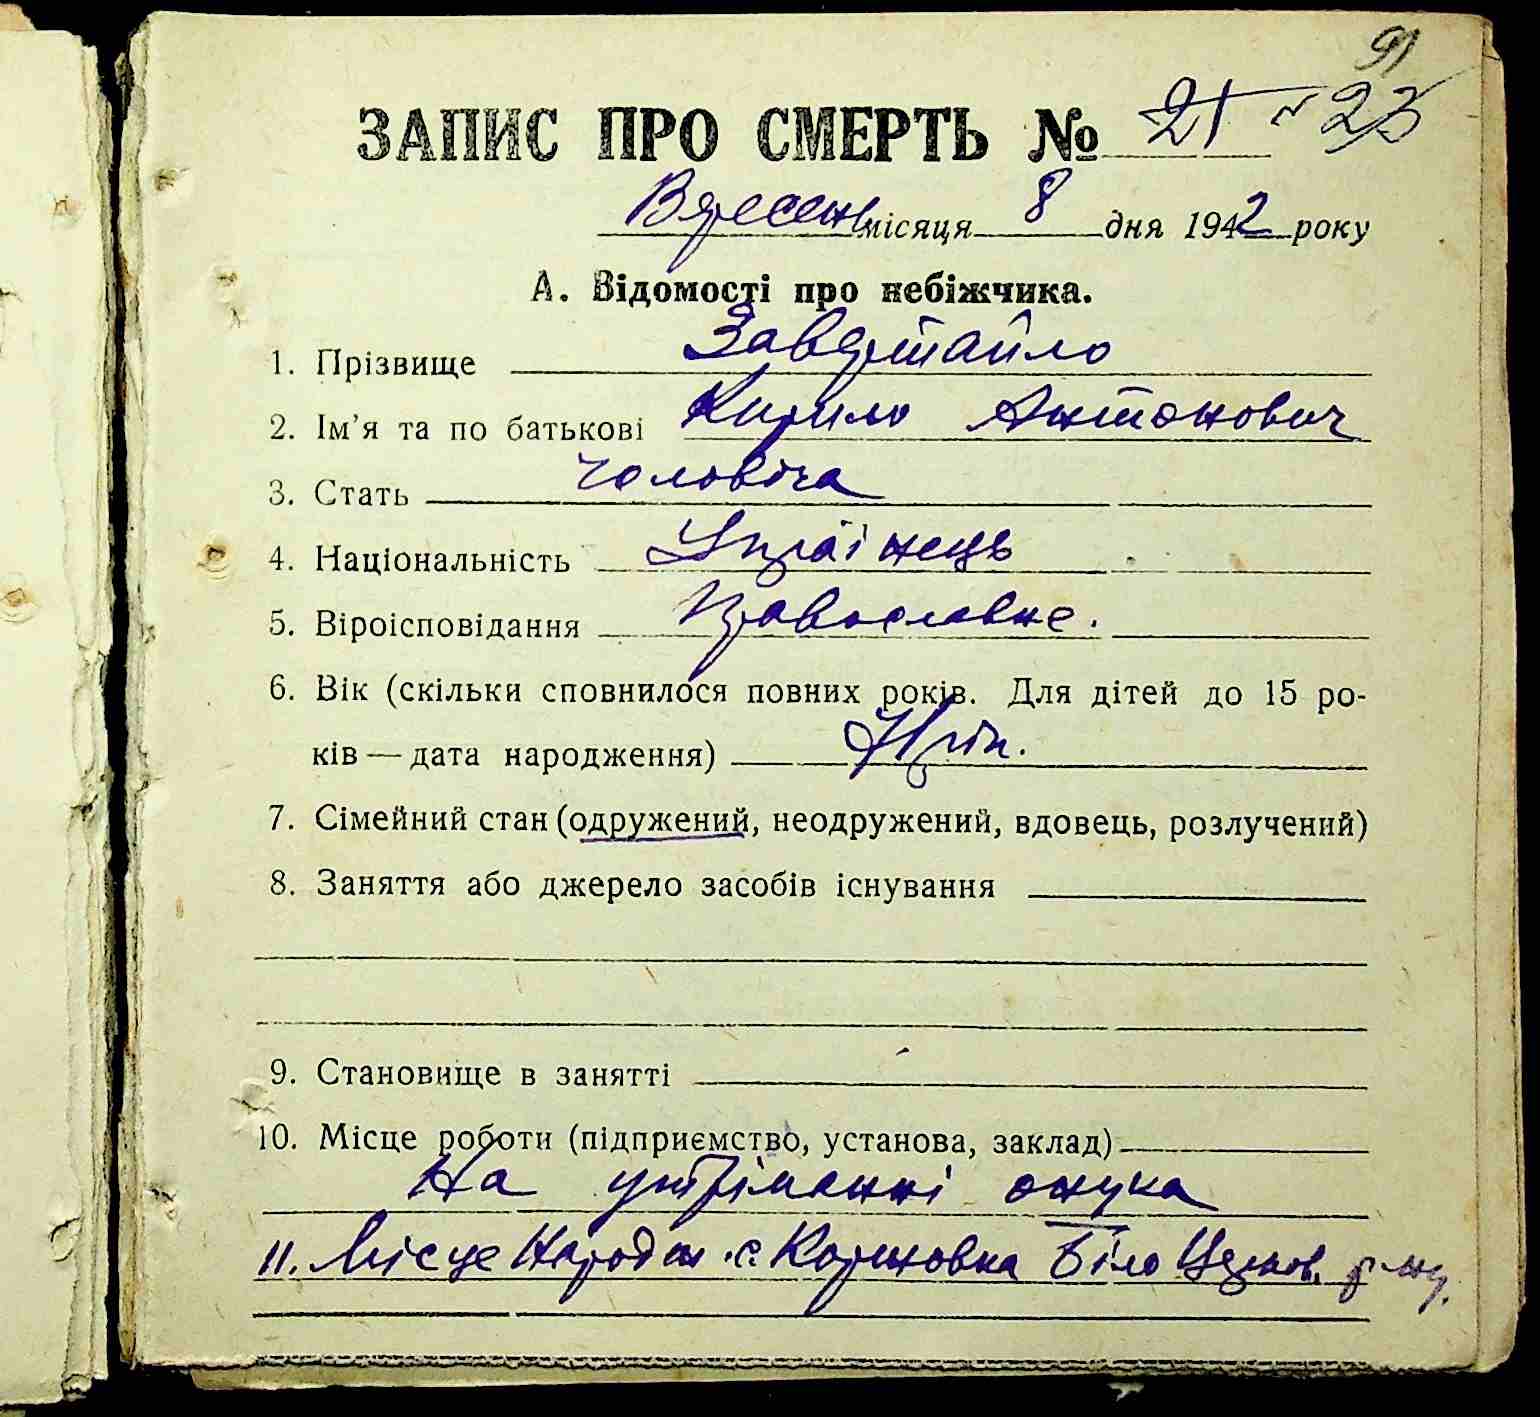 91
ЗАПИС ПРО СМЕРТЬ № 21 23
Вересень місяця 8 дня 1942 року
А. Відомості про небіжчика.
1. Прізвище Завертайло
2. Ім'я та по батькові Кирило Антонович
3. Стать чоловіча
4. Національність Українець
5. Віроісповідання Православне.
6. Вік (скільки сповнилося повних років. Для дітей до 15 ро-
ків — дата народження) рік.
7. Сімейний стан (одружений, неодружений, вдовець, розлучений)
8. Заняття або джерело засобів існування
9. Становище в занятті
10. Місце роботи (підприємство, установа, заклад)
На утріманні онука
11. Місце Народж с. Коржовка Біло Церков. р-ну.